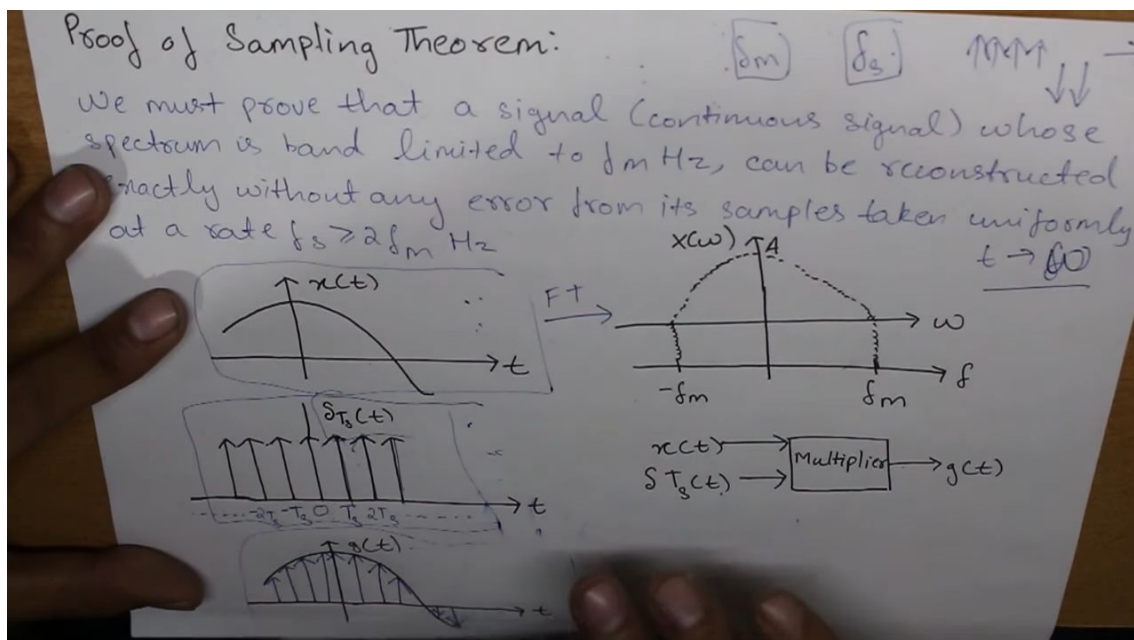 Proof of Sampling Theorem:
fm
fs
We must prove that a signal (continuous signal) whose
spectrum is band limited to fm Hz, can be reconstructed
exactly without any error from its samples taken uniformly
at a rate fs ≥ 2fm Hz
t →
x(t)
t
FT
X(ω)
A
ω
f
-fm
fm
δTs(t)
-2Ts -Ts 0 Ts 2Ts
t
x(t)
δTs(t)
Multiplier
g(t)
g(t)
t